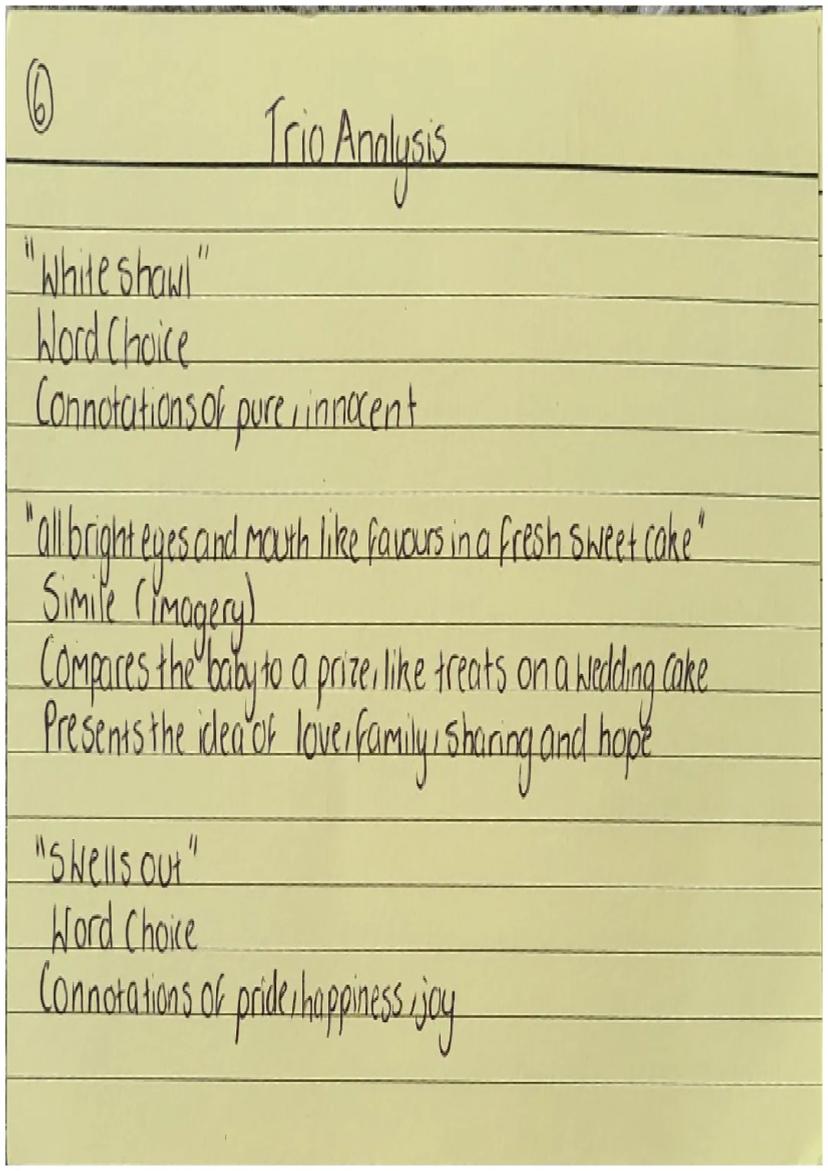 6
Trio Analysis
"White shawl"
Word Choice
Connotations of pure, innocent
"all bright eyes and mouth like favours in a fresh sweet cake"
Simile (imagery)
Compares the baby to a prize, like treats on a wedding cake
Presents the idea of love, family, sharing and hope
"Swells out"
Word Choice
Connotations of pride, happiness, joy